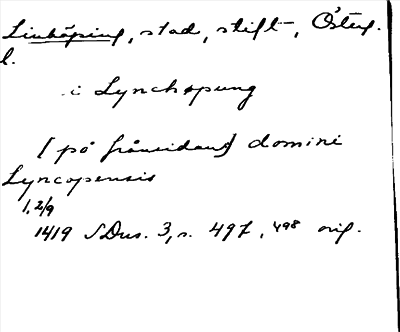 Linköping, stad, stift, Österg.
l.
i Lynchøpung
[på frånsidan] domini
Lyncopensis
1, 2/9
1419 SDns. 3, s. 497, 498 orig.